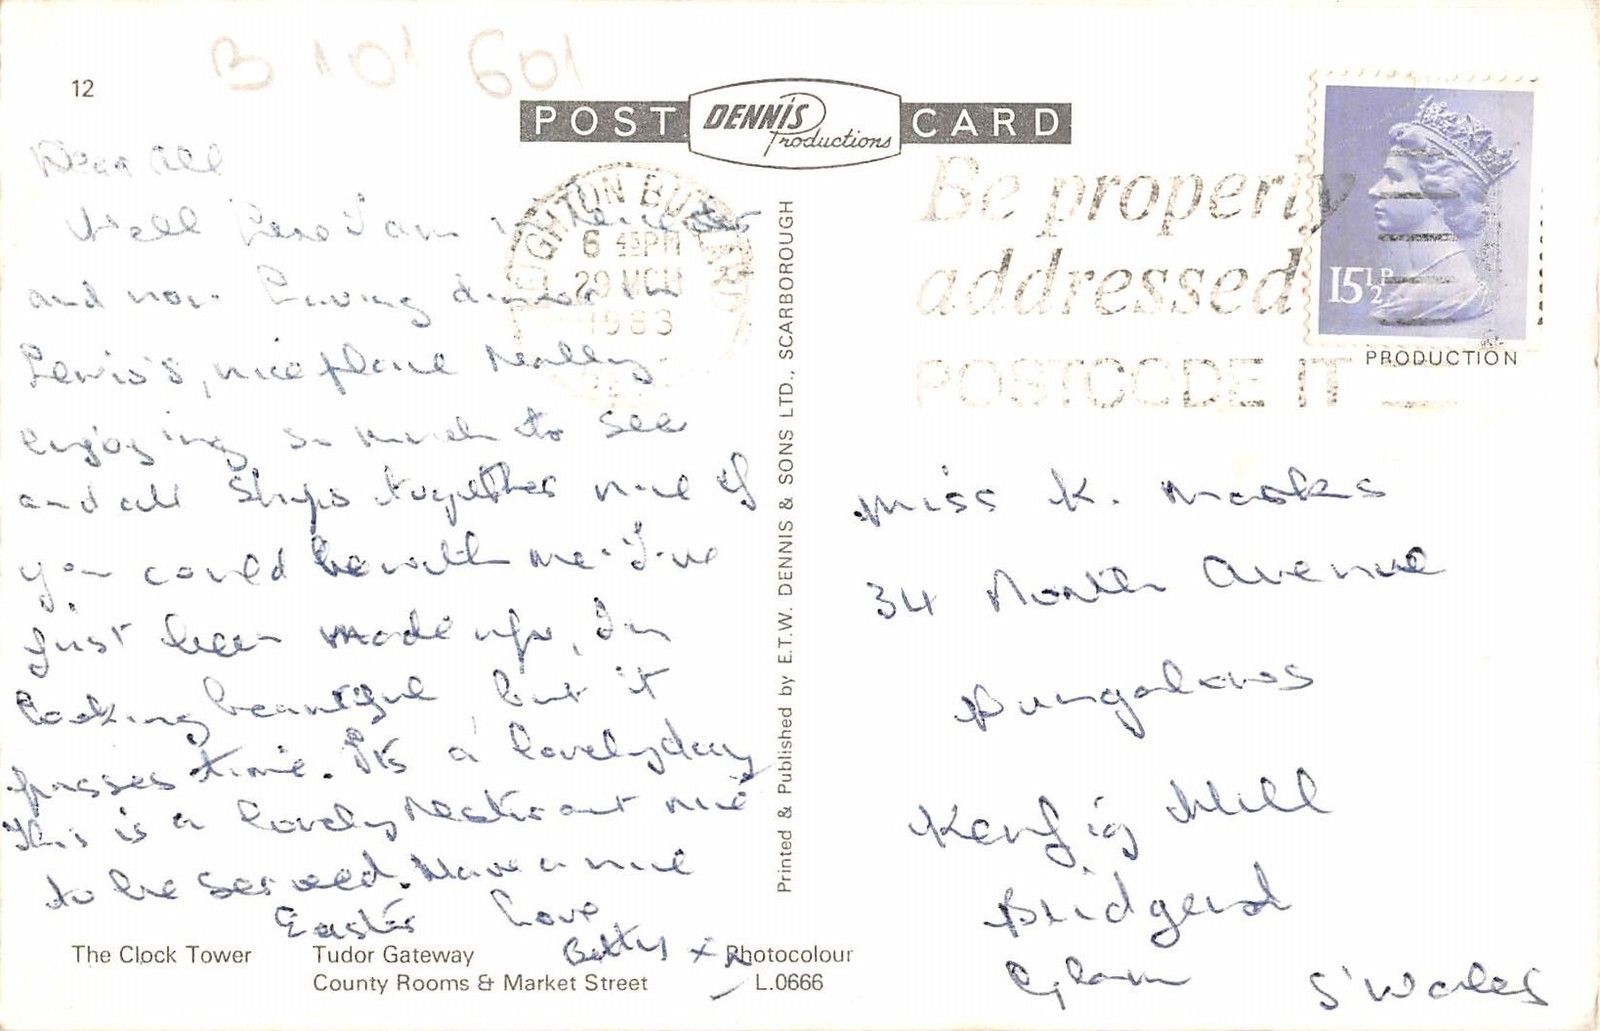 B 101 601
12
POST DENNIS Productions CARD
Dear all
Well here I am in Leicester
and now having dinner in
Lewis's, nice place really
enjoying so much to see
and all shops together nice if
you could be with me. I've
just been made up, I'm
looking beautiful but it
passes time. It's a lovely day
This is a lovely restraunt nice
to be served. Have a nice
Easter love
Betty x
The Clock Tower
Tudor Gateway
County Rooms & Market Street
Photocolour
L.0666
Printed & Published by E.T.W. DENNIS & SONS LTD., SCARBOROUGH
LEIGHTON BUZZARD
6 45PM
29 MCH
1983
Be properly
addressed
POSTCODE IT
15½P
PRODUCTION
Miss K.
34 North Avenue
Bungalows
Kenfig Hill
Bridgend
Glam S'Wales